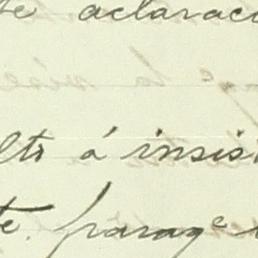 te aclarac
lto á insis
te. paraq.e